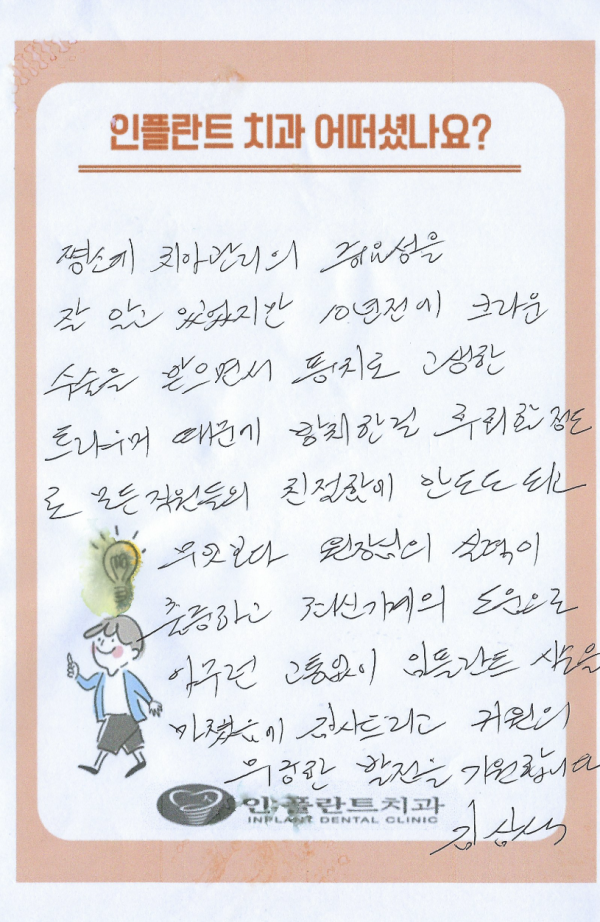 인플란트 치과 어떠셨나요?
평소에 치아관리의 중요성을
잘 알고 있었지만 10년전에 크라운
수술을 받으면서 통치로 고생한
트라우마 때문에 방치한걸 후회할 정도
로 모든직원들의 친절함에 안도도 되고
무엇보다 원장님의 실력이
출중하고 최신기계의 도움으로
아무런 고통없이 임플란트 시술을
마쳤음에 감사드리고 귀원의
무궁한 발전을 기원합니다
인플란트치과
INPLANT DENTAL CLINIC